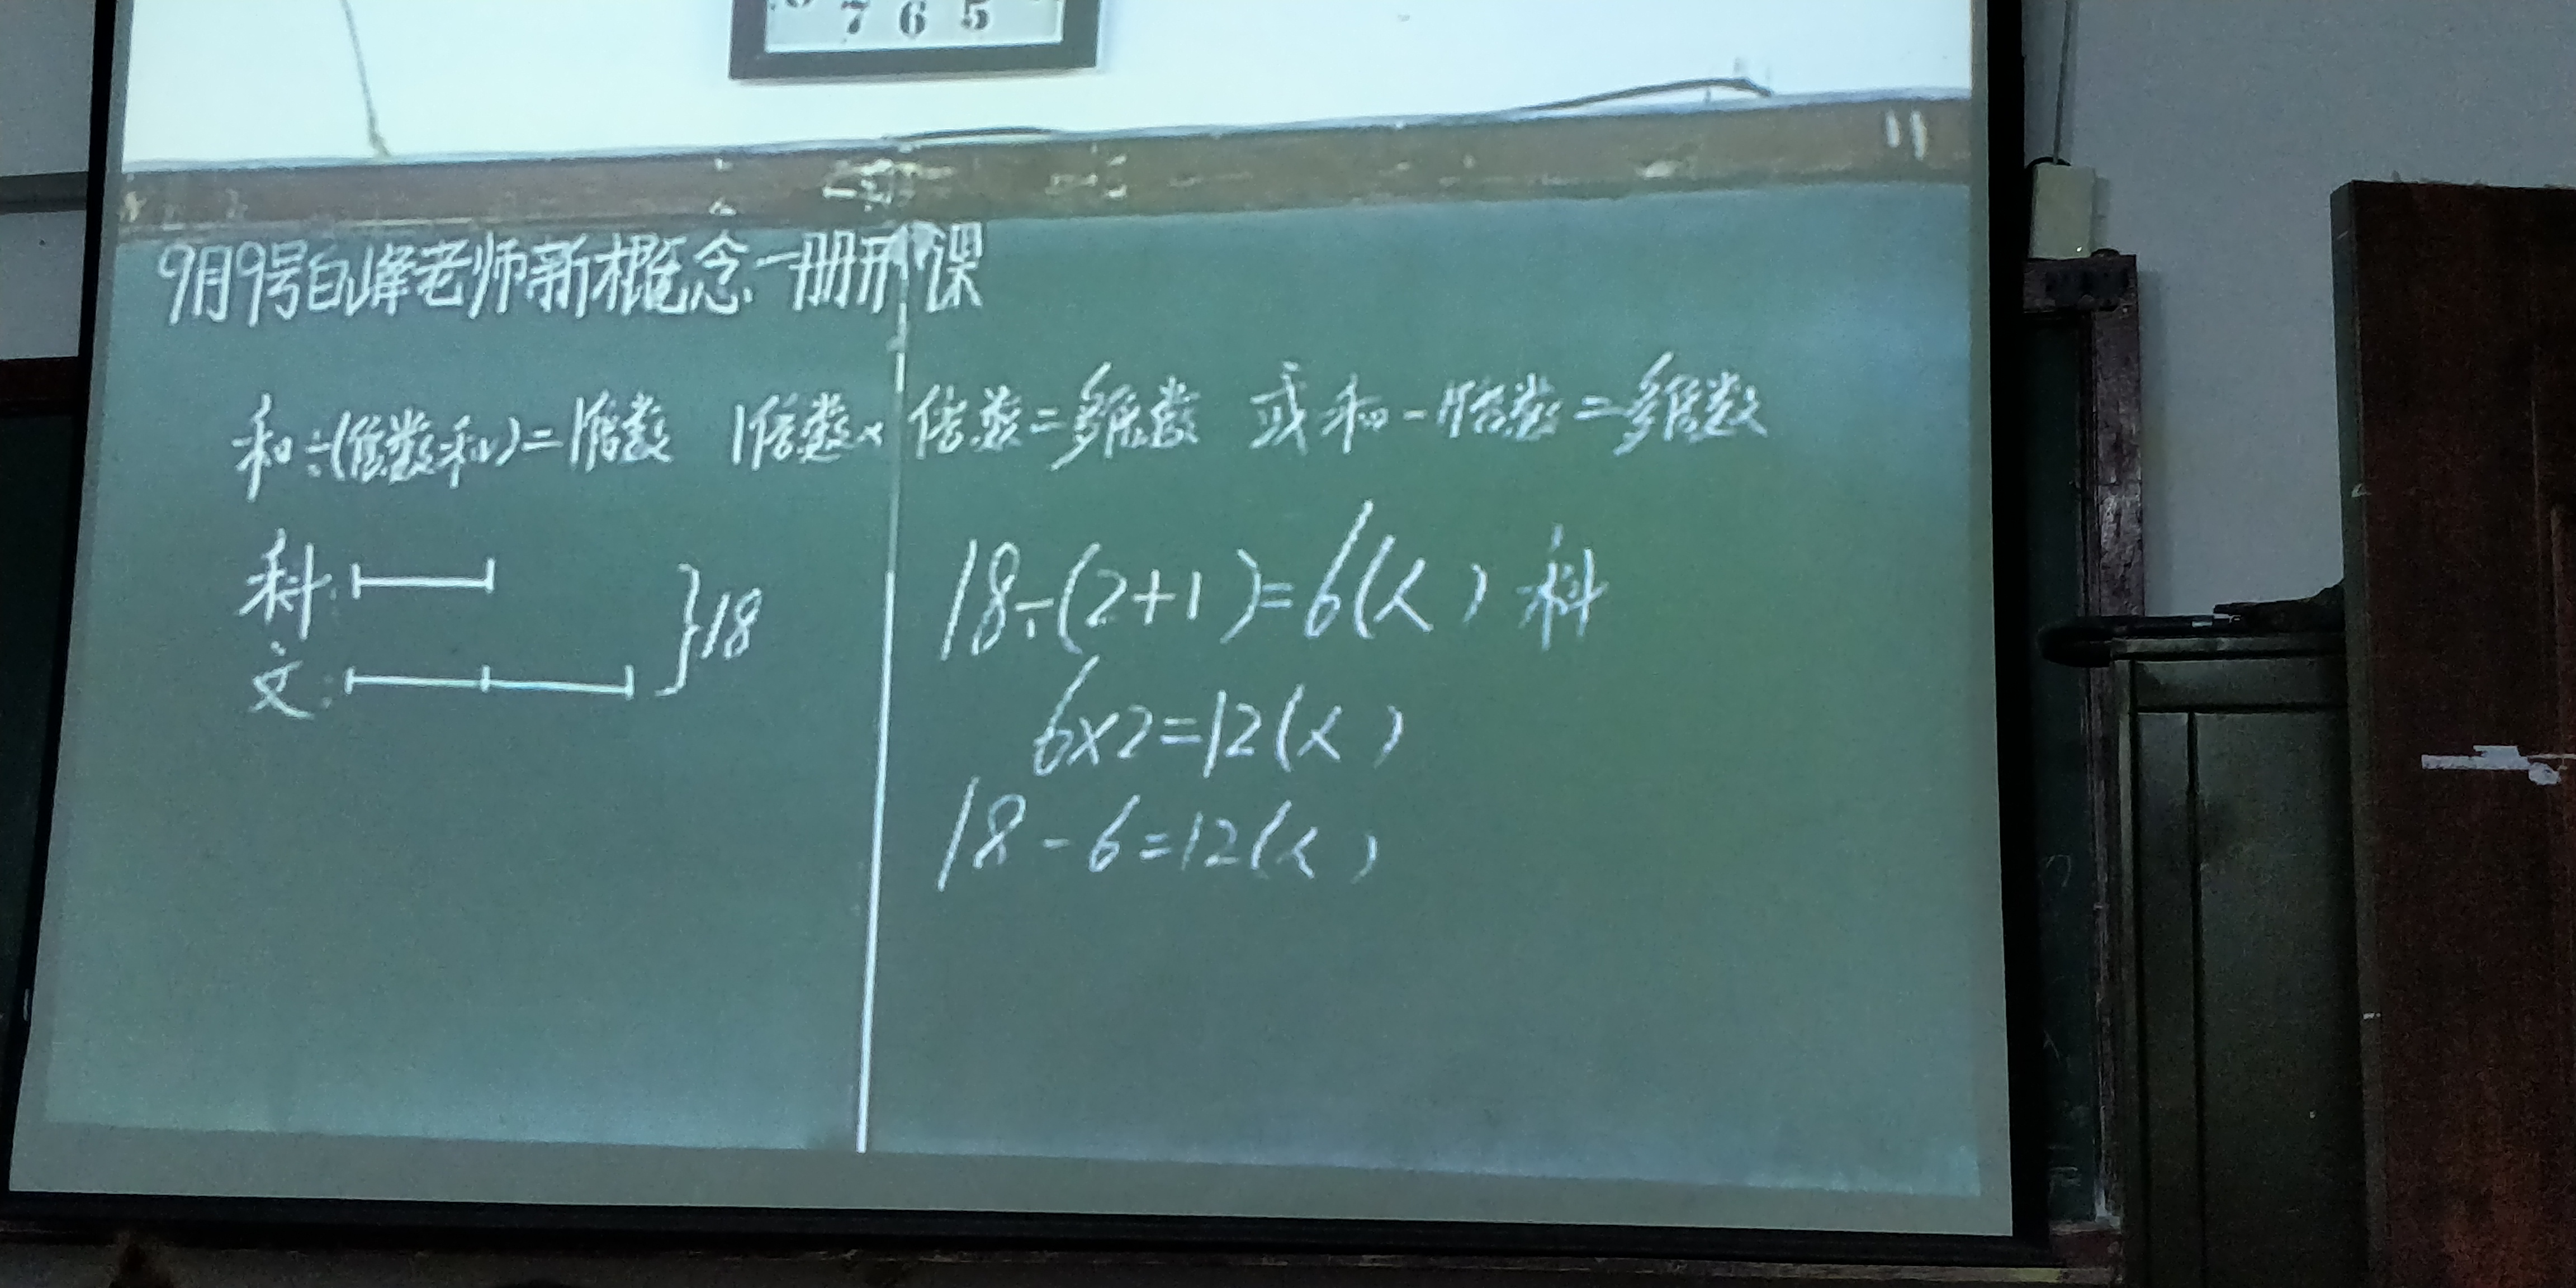 7 6 5
9月9号白峰老师新概念一册开课
和÷(倍数和)=1倍数 1倍数×倍数=多倍数 或和-1倍数=多倍数
科:
文:
}18
18÷(2+1)=6(人) 科
6×2=12(人)
18-6=12(人)